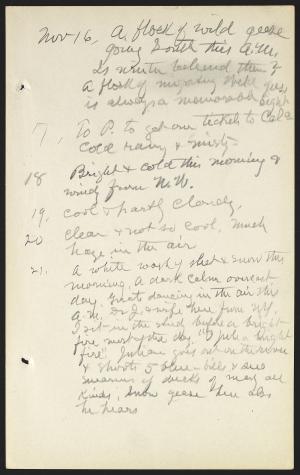 Nov 16. A flock of wild geese
going South this A.M.
Is winter behind them?
A flock of migrating wild geese
is always a memorable sight
17 To P. to get our tickets to Cal.
Cold rainy & misty
18 Bright & cold this morning &
wind from N.W.
19. Cool & partly cloudy,
20 Clear & not so cool. Much
haze in the air
21. A white washy sleet & snow this
morning. A dark calm overcast
day. Gnats dancing in the air this
A.M. Dr J. & wife here from N.Y.
I sit in the before a bright
fire most of the day. "I felt a bright
fire". Julian goes out on the river
& shoots 5 blue-bills & sees
swarms of ducks of many all
kinds, snow geese here also
he hears